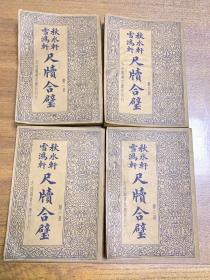 秋水軒
雪鴻軒
尺牘合璧
秋水軒
雪鴻軒
尺牘合璧
秋水軒
雪鴻軒
尺牘合璧
秋水軒
雪鴻軒
尺牘合璧